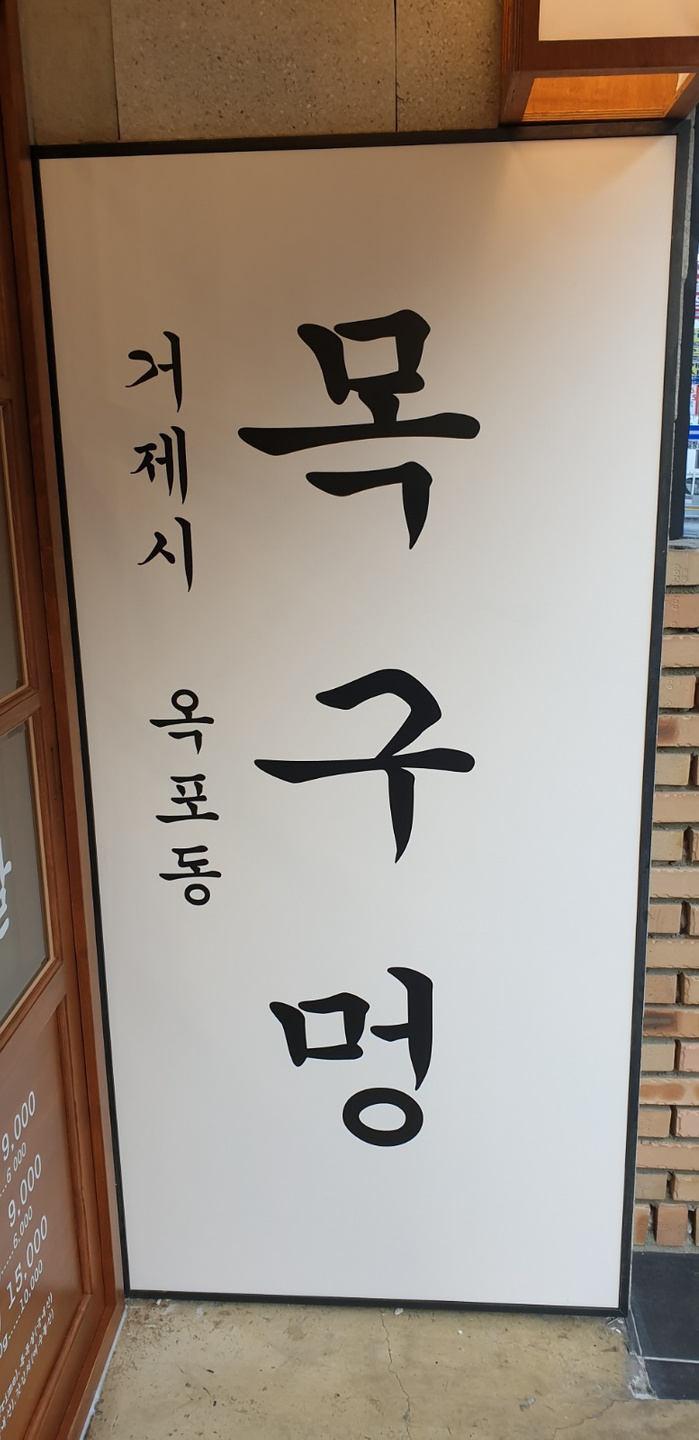 목구멍
거제시 옥포동
9,000
6,000
9,000
6,000
15,000
10,000